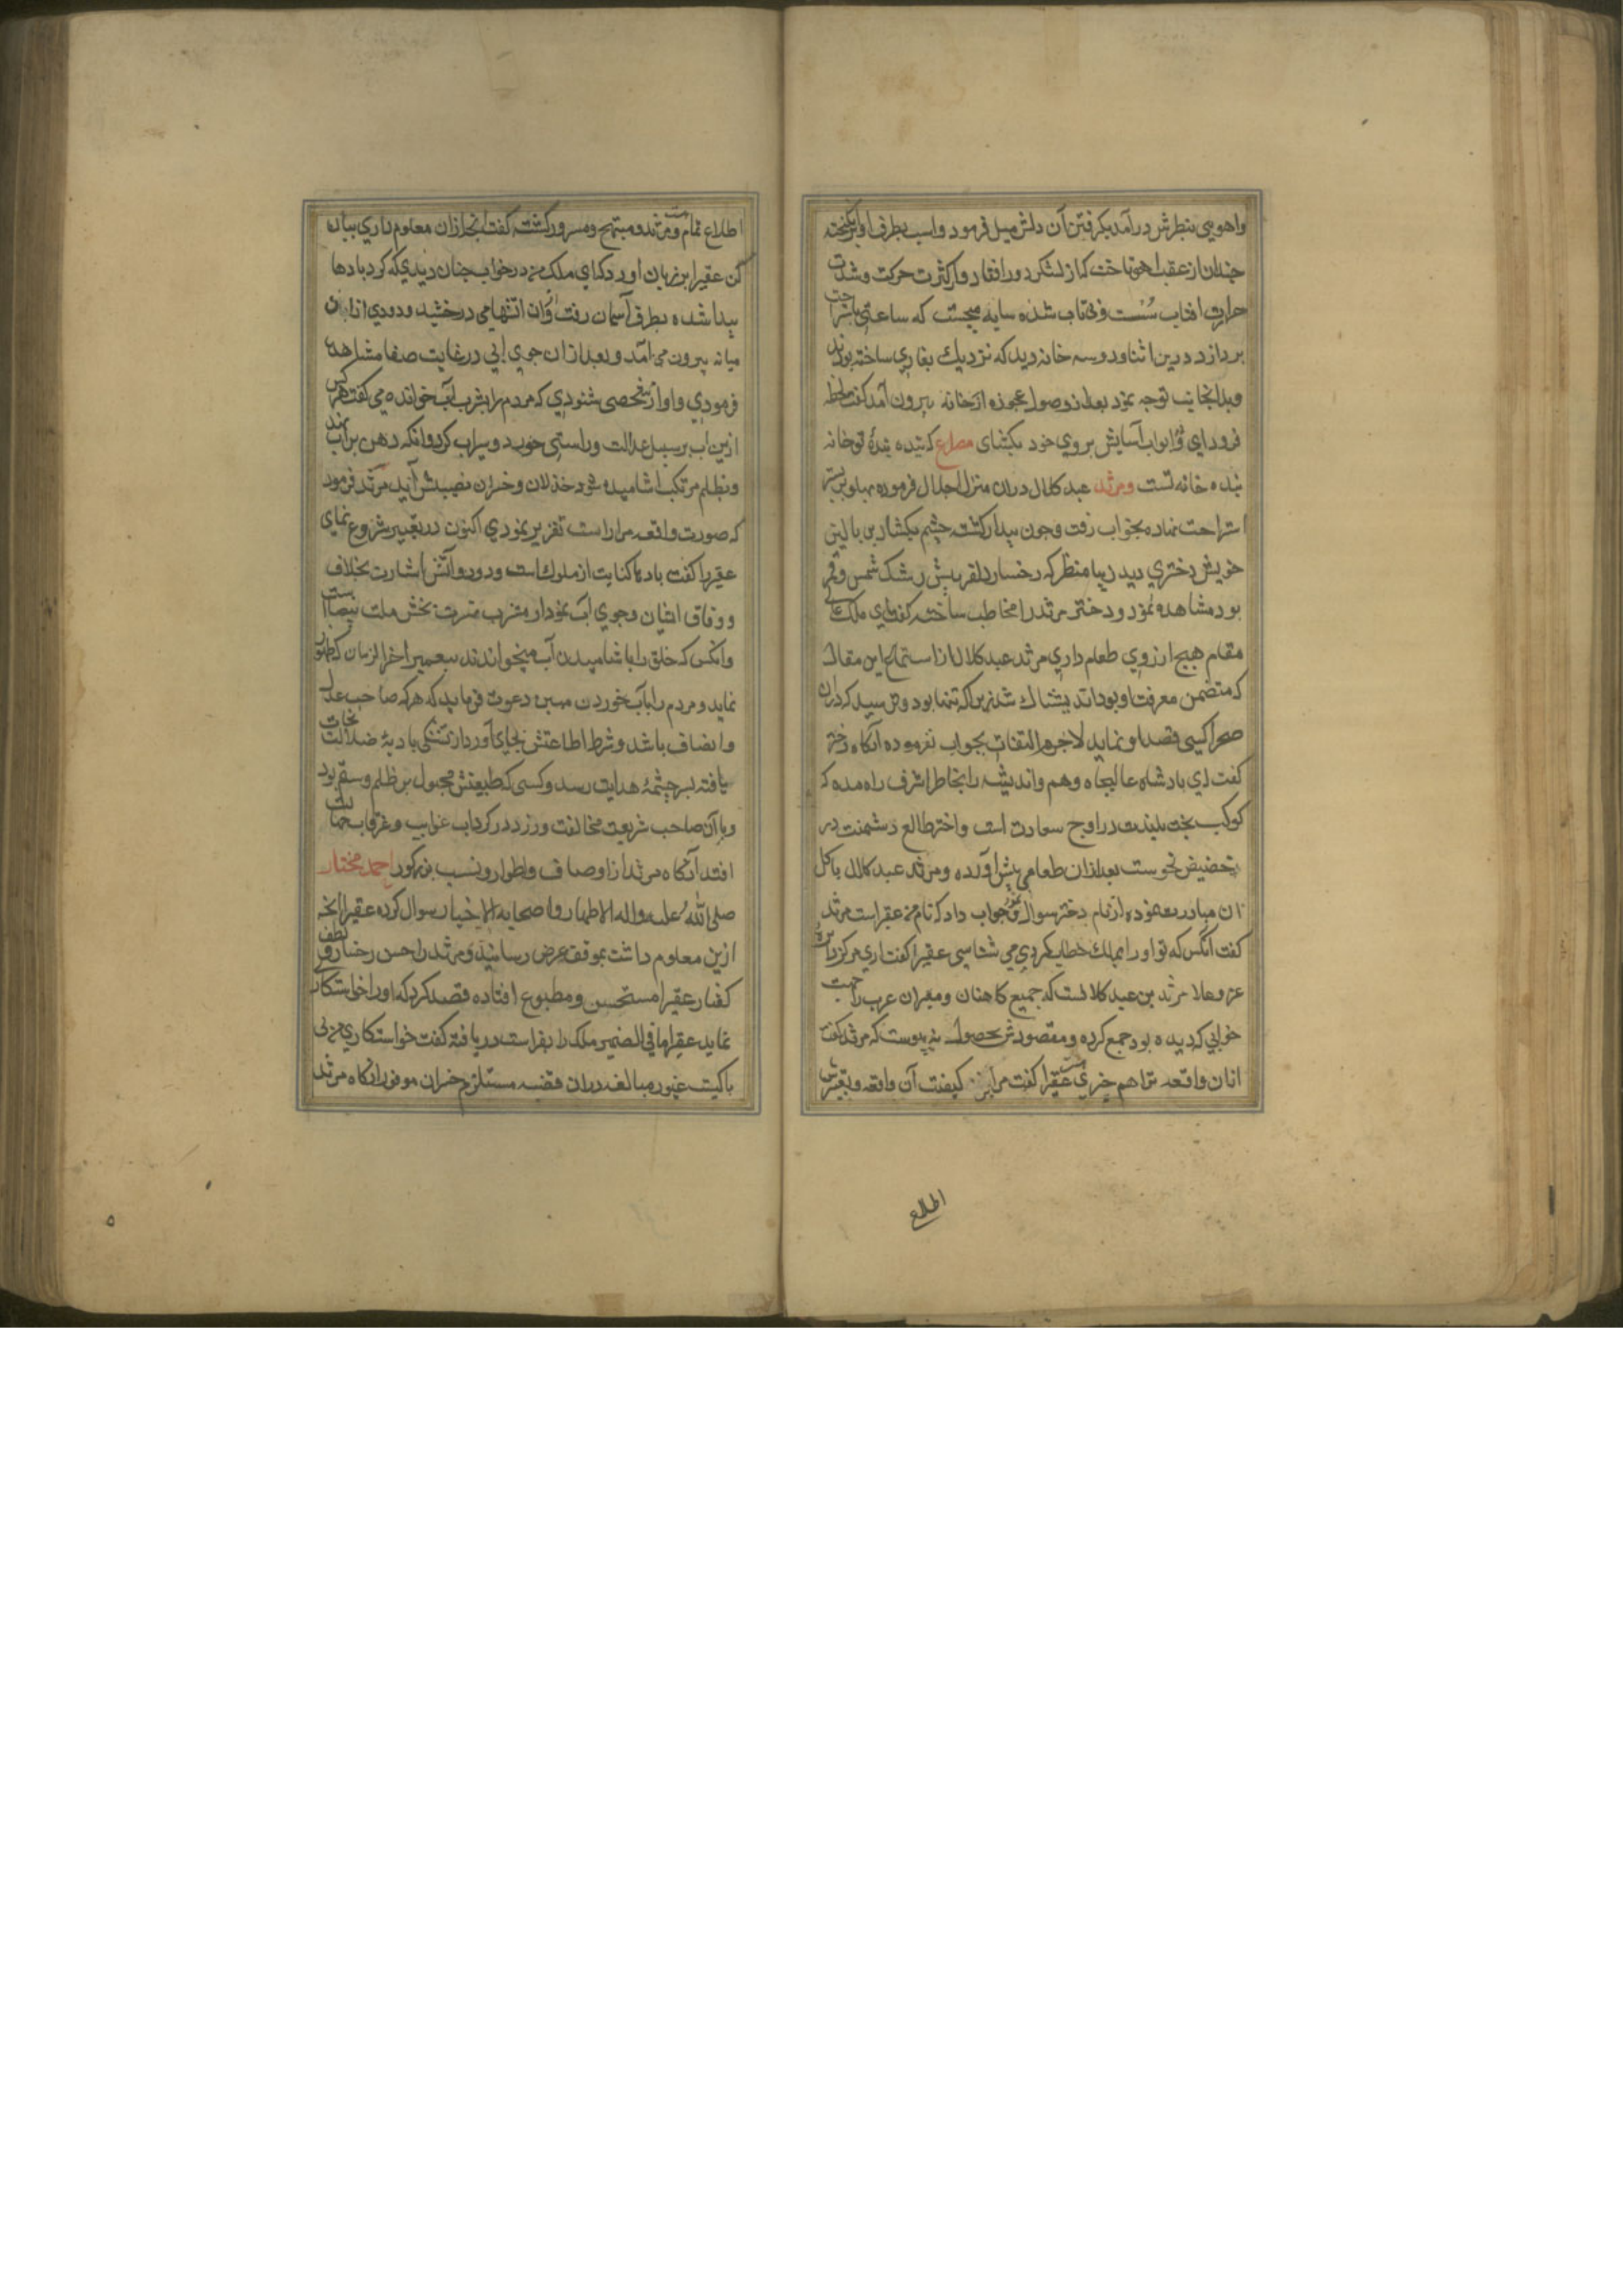 واهویی بنظرش درآمد بکرفتن آن دلش میل فرمود واسب بطرف او برانکیخته
چندان از عقب اهو تاخت که از لشکر دور افتاد واز کثرت حرکت وشدت
حرارت افتاب سُست وبی تاب شده سایه میجست که ساعتی باستراحت
بردازد درین اثنا دو سه خانه دید که نزدیك بغاری ساخته بودند
وبدانجانب توجه نمود بعد از وصول عجوزه از خانه بیرون آمد کفت لحظه
فرود ای وابواب آسایش بروی خود بکشای مصراع که بنده بندۀ تو خانه
بنده خانه تست ومرثد عبد کلال دران منزل اجلال فرموده بهلو بر بستر
استراحت نهاده بخواب رفت وچون بیدار کشت چشم بکشاد بر بالین
خویش دختری دید زیبا منظر که رخسار دلفریبش رشک شمس وقمر
بود مشاهده نمود ودختر مرثد را مخاطب ساخته کفت ای ملک عالی
مقام هیچ ارزوی طعام داری مرثد عبد کلال از استماع این مقال
که متضمن معرفت او بود اندیشناك شد زیرا که تنها بود ومی ترسید که دران
صحرا کسی قصد او نماید لاجرم التفات بجواب نفرموده آنکاه دختر
کفت ای بادشاه عالیجاه وهم واندیشه را بخاطر اشرف راه مده که
کوکب بخت بلندت در اوج سعادت است واختر طالع دشمنت در
حضیض نحوست بعد ازان طعامی پیش آورده ومرثد عبد کلال باکل
ان مبادرت نموده از نام دختر سوال نمود جواب داد که نام من عقیراست مرثد
کفت آنکس که تو او را بملك خطاب کردی می شناسی عقیرا کفت اری مرکز دایرۀ
عز وعلا مرثد بن عبد کلالست که جمیع کاهنان ومعبران عرب را جهت
خوابی که دیده بود جمع کرده ومقصودش بحصول نه پیوست که مرثد کفت
ازان واقعه ترا هم خبری هست عقیرا کفت مرا بر کیفیت آن واقعه وتعبیرش
اطلع
اطلاع تمام هست ومرثد مبتهج ومسرور کشته کفت آنچه ازان معلوم داری بیان
کن عقیرا بر زبان اورد که ای ملک من در خواب چنان دیدی که کردبادها
پیدا شده بطرف آسمان رفت وازان اتشها می درخشید ودودی ازان
میانه بیرون می آمد وبعد ازان جوی ابی در غایت صفا مشاهده
فرمودی واواز شخصی شنودی که مردم را بشرب آب خوانده می کفت هر کس
ازین اب بر سبیل عدالت وراستی خورد وسیراب کردد وانکه دهن بر آب نهد
وبظلم مرتکب اشامیدن شود خذلان وخسران نصیبش آید مرثد فرمود
که صورت واقعه مرا راست تقریر نمودی اکنون در تعبیر شروع نمای
عقیرا کفت بادها کنایت از ملوك است ودود واتش اشارت بخلاف
ووفاق ایشان وجوی آب نمودار مشرب مسرت بخش ملت بیضاست
وانکس که خلق را باشامیدن آب میخواندند پیغمبر اخر الزمان که ظهور
نماید ومردم را بآب خوردن مبین دعوت فرماید که هر که صاحب عدل
وانصاف باشد وشرط اطاعتش بجای آورد از تشنکی بادیۀ ضلالت نجات
یافته بسر چشمۀ هدایت رسد وکسی که طبیعتش مجبول بر ظلم وستم بود
وباآن صاحب شریعت مخالفت ورزد در کرداب عذاب وغرقاب ممات
افتد آنکاه مرثد از اوصاف واطوار ونسب مذکور احمد مختار
صلی الله علیه واله الاطهار واصحابه الاخیار سوال کرده عقیرا انچه
ازین معلوم داشت بموقف عرض رسانید ومرثد را حسن رخسار ولطف
کفتار عقیرا مستحسن ومطبوع افتاده قصد کرد که او را خواستکاری
نماید عقیرا ما فی الضمیر ملک را بفراست دریافته کفت خواستکاری من بی
باکیست غیور مبالغه دران قضیه مستلزم خسران موفور آنکاه مرثد
۵